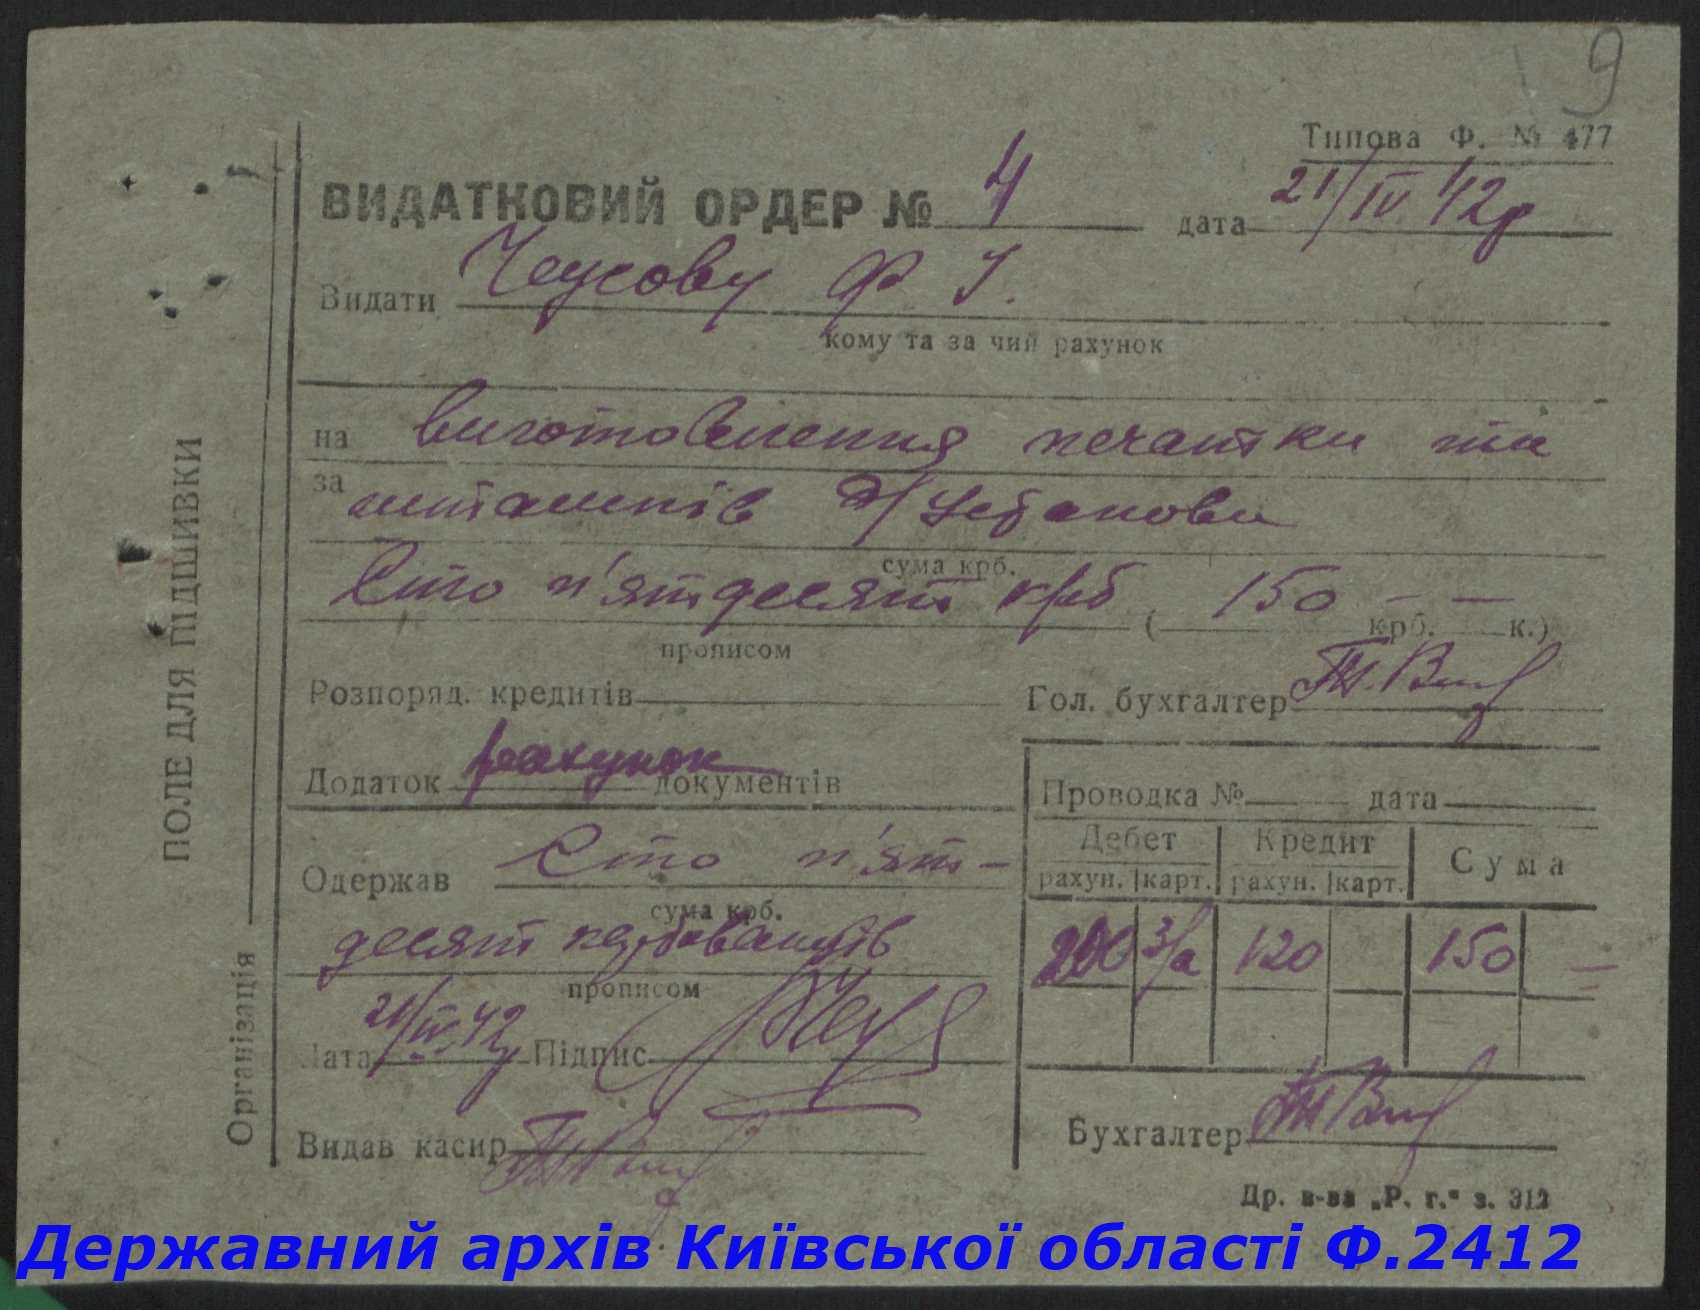 9
Типова Ф. № 477
ВИДАТКОВИЙ ОРДЕР № 4 дата 21/IV 42р
Видати Чеусову Ф І.
кому та за чий рахунок
на виготовлення печатки та
за штампів д/установи
сума крб.
Сто п'ятдесят крб ( 150 — крб. — к.)
прописом
Розпоряд. кредитів Гол. бухгалтер
Додаток рахунок документів
Проводка № дата
Дебет Кредит Сума
рахун. карт. рахун. карт.
200 3/а 120 150 =
Одержав Сто п'ят-
сума крб.
десят карбованців
прописом
Дата 21/IV 42р Підпис
Видав касир
Бухгалтер
Др. в-ва „Р. г.“ з. 312
ПОЛЕ ДЛЯ ПІДШИВКИ
Організація
Державний архів Київської області Ф.2412